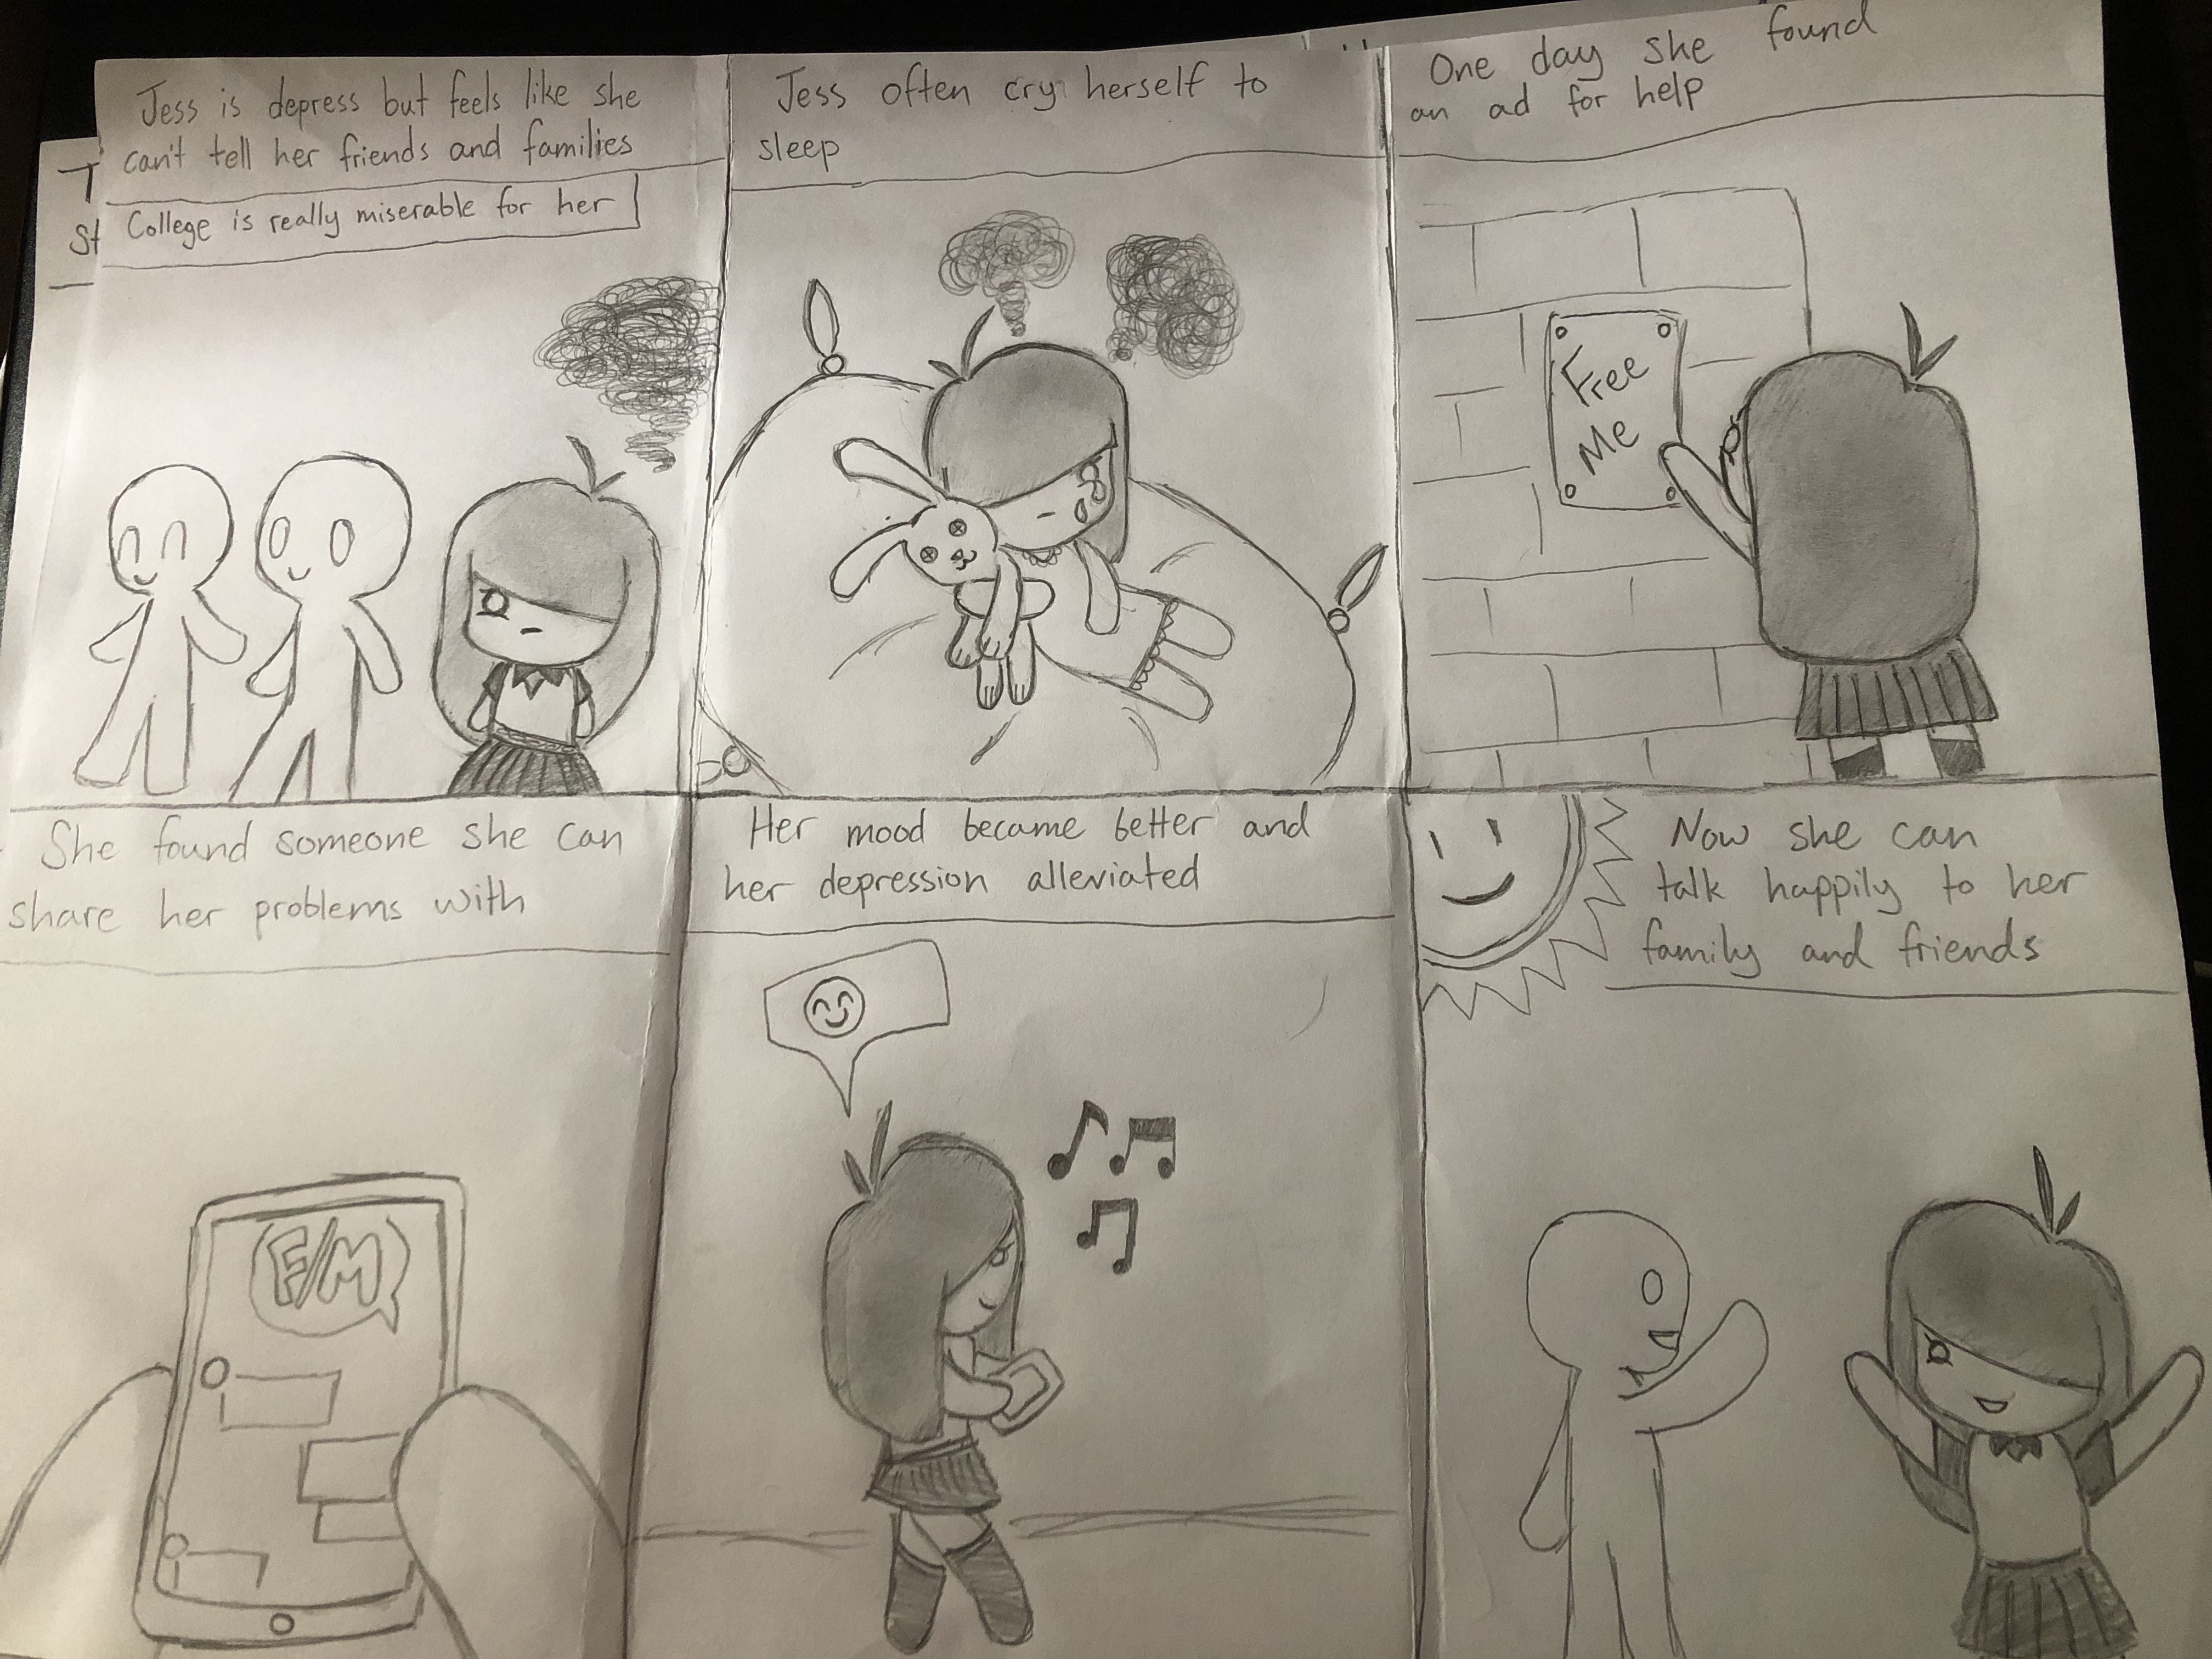 Jess is depress but feels like she
can't tell her friends and families
College is really miserable for her
Jess often cry herself to
sleep
One day she found
an ad for help
Free
Me
She found someone she can
share her problems with
F/M
Her mood became better and
her depression alleviated
Now she can
talk happily to her
family and friends